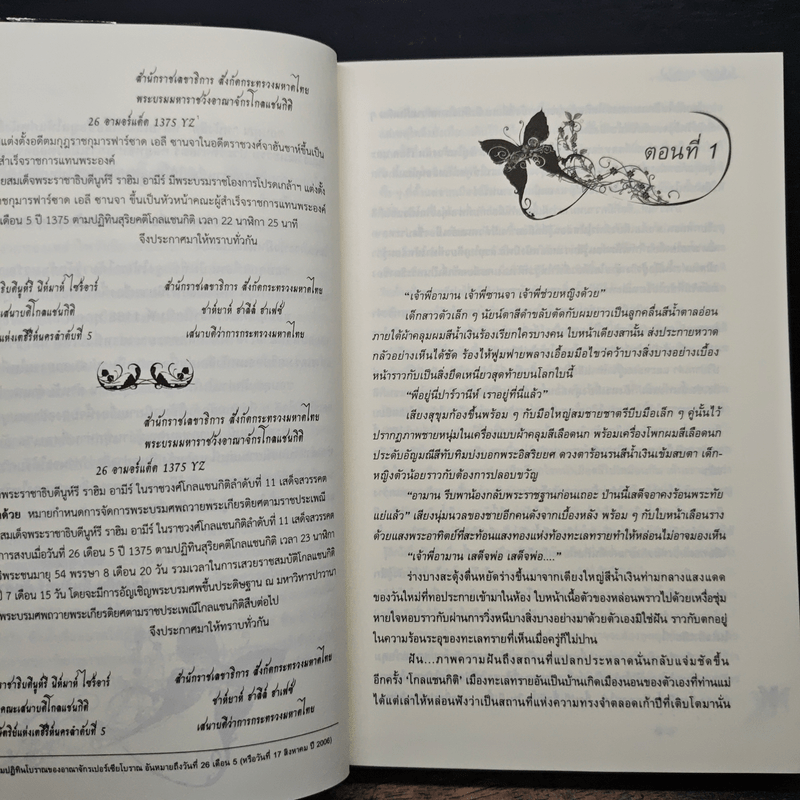 สำนักราชเลขาธิการ สังกัดกระทรวงมหาดไทย
พระบรมมหาราชวังอาณาจักรโกลแซนกิติ
26 อามอร์แด็ด 1375 YZ
แต่งตั้งอดีตมกุฎราชกุมารฟาร์ซาด เอลี ซานจาในอดีตราชวงศ์จาฮันชาห์ขึ้นเป็น
สำเร็จราชการแทนพระองค์
ยสมเด็จพระราชาธิบดีนูห์รี ราฮิม อามีร์ มีพระบรมราชโองการโปรดเกล้าฯ แต่งตั้ง
ราชกุมารฟาร์ซาด เอลี ซานจา ขึ้นเป็นหัวหน้าคณะผู้สำเร็จราชการแทนพระองค์
เดือน 5 ปี 1375 ตามปฏิทินสุริยคติโกลแซนกิติ เวลา 22 นาฬิกา 25 นาที
จึงประกาศมาให้ทราบทั่วกัน
สำนักราชเลขาธิการ สังกัดกระทรวงมหาดไทย
ซาห์ยาห์ ฮาสีส์ ฮาเฟซ์
เสนายดีโกลแซนกิติ เสนาบดีว่าการกระทรวงมหาดไทย
สำนักราชเลขาธิการ สังกัดกระทรวงมหาดไทย
พระบรมมหาราชวังอาณาจักรโกลแซนกิติ
26 อามอร์แด็ด 1375 YZ
จพระราชาธิบดีนูห์รี ราฮิม อามีร์ ในราชวงศ์โกลแซนกิติลำดับที่ 11 เสด็จสวรรคต
ด้วย หมายกำหนดการจัดการพระบรมศพถวายพระเกียรติยศตามราชประเพณี
ด็จพระราชาธิบดีนูห์รี ราฮิม อามีร์ ในราชวงศ์โกลแซนกิติลำดับที่ 11 เสด็จสวรรคต
การสงบเมื่อวันที่ 26 เดือน 5 ปี 1375 ตามปฏิทินสุริยคติโกลแซนกิติ เวลา 23 นาฬิกา
พระชนมายุ 54 พรรษา 8 เดือน 20 วัน รวมเวลาในการเสวยราชสมบัติโกลแซนกิติ
ปี 7 เดือน 15 วัน โดยจะมีการอัญเชิญพระบรมศพขึ้นประดิษฐาน ณ มหาวิหารปาวานา
พระบรมศพถวายพระเกียรติยศตามราชประเพณีโกลแซนกิติสืบต่อไป
จึงประกาศมาให้ทราบทั่วกัน
สำนักราชเลขาธิการ สังกัดกระทรวงมหาดไทย
ซาห์ยาห์ ฮาสีส์ ฮาเฟซ์
เสนาบดีว่าการกระทรวงมหาดไทย
มปฏิทินโบราณของอาณาจักรเปอร์เซียโบราณ อันหมายถึงวันที่ 26 เดือน 5 (หรือวันที่ 17 สิงหาคม ปี 2006)
ตอนที่ 1
“เจ้าพี่อามาน เจ้าพี่ซานจา เจ้าพี่ช่วยหญิงด้วย”
เด็กสาวตัวเล็ก ๆ นัยน์ตาสีดำขลับตัดกับผมยาวเป็นลูกคลื่นสีน้ำตาลอ่อน
ภายใต้ผ้าคลุมผมสีน้ำเงินร้องเรียกใครบางคน ใบหน้าเดียงสานั้น ส่งประกายหวาด
กลัวอย่างเห็นได้ชัด ร้องไห้ฟูมฟายพลางเอื้อมมือไขว่คว้าบางสิ่งบางอย่างเบื้อง
หน้าราวกับเป็นสิ่งยึดเหนี่ยวสุดท้ายบนโลกใบนี้
“พี่อยู่นี่ปาร์วานีห์ เราอยู่ที่นี่แล้ว”
เสียงสุขุมก้องขึ้นพร้อม ๆ กับมือใหญ่สมชายชาตรีบีบมือเล็ก ๆ คู่นั้นไว้
ปรากฏภาพชายหนุ่มในเครื่องแบบผ้าคลุมสีเลือดนก พร้อมเครื่องโพกผมสีเลือดนก
ประดับอัญมณีสีทับทิมบ่งบอกพระอิสริยยศ ดวงตาร้อนรนสีน้ำเงินเข้มสบตา เด็ก-
หญิงตัวน้อยราวกับต้องการปลอบขวัญ
“อามาน รีบพาน้องกลับพระราชฐานก่อนเถอะ ป่านนี้เสด็จอาคงร้อนพระทัย
แย่แล้ว” เสียงนุ่มนวลของชายอีกคนดังจากเบื้องหลัง พร้อม ๆ กับใบหน้าเลือนราง
ด้วยแสงพระอาทิตย์ที่สะท้อนแสงทองแห่งท้องทะเลทรายทำให้หล่อนไม่อาจมองเห็น
“เจ้าพี่อามาน เสด็จพ่อ เสด็จพ่อ....”
ร่างบางสะดุ้งตื่นหยัดร่างขึ้นมาจากเตียงใหญ่สีน้ำเงินท่ามกลางแสงแดด
ของวันใหม่ที่ทอประกายเข้ามาในห้อง ใบหน้าเนื้อตัวของหล่อนพราวไปด้วยเหงื่อชุ่ม
หายใจหอบราวกับผ่านการวิ่งหนีบางสิ่งบางอย่างมาด้วยตัวเองมิใช่ฝัน ราวกับตกอยู่
ในความร้อนระอุของทะเลทรายที่เห็นเมื่อครู่ก็ไม่ปาน
ฝัน...ภาพความฝันถึงสถานที่แปลกประหลาดนั่นกลับแจ่มชัดขึ้น
อีกครั้ง ‘โกลแซนกิติ’ เมืองทะเลทรายอันเป็นบ้านเกิดเมืองนอนของตัวเองที่ท่านแม่
ได้แต่เล่าให้หล่อนฟังว่าเป็นสถานที่แห่งความทรงจำตลอดเก้าปีที่เติบโตมานั่น